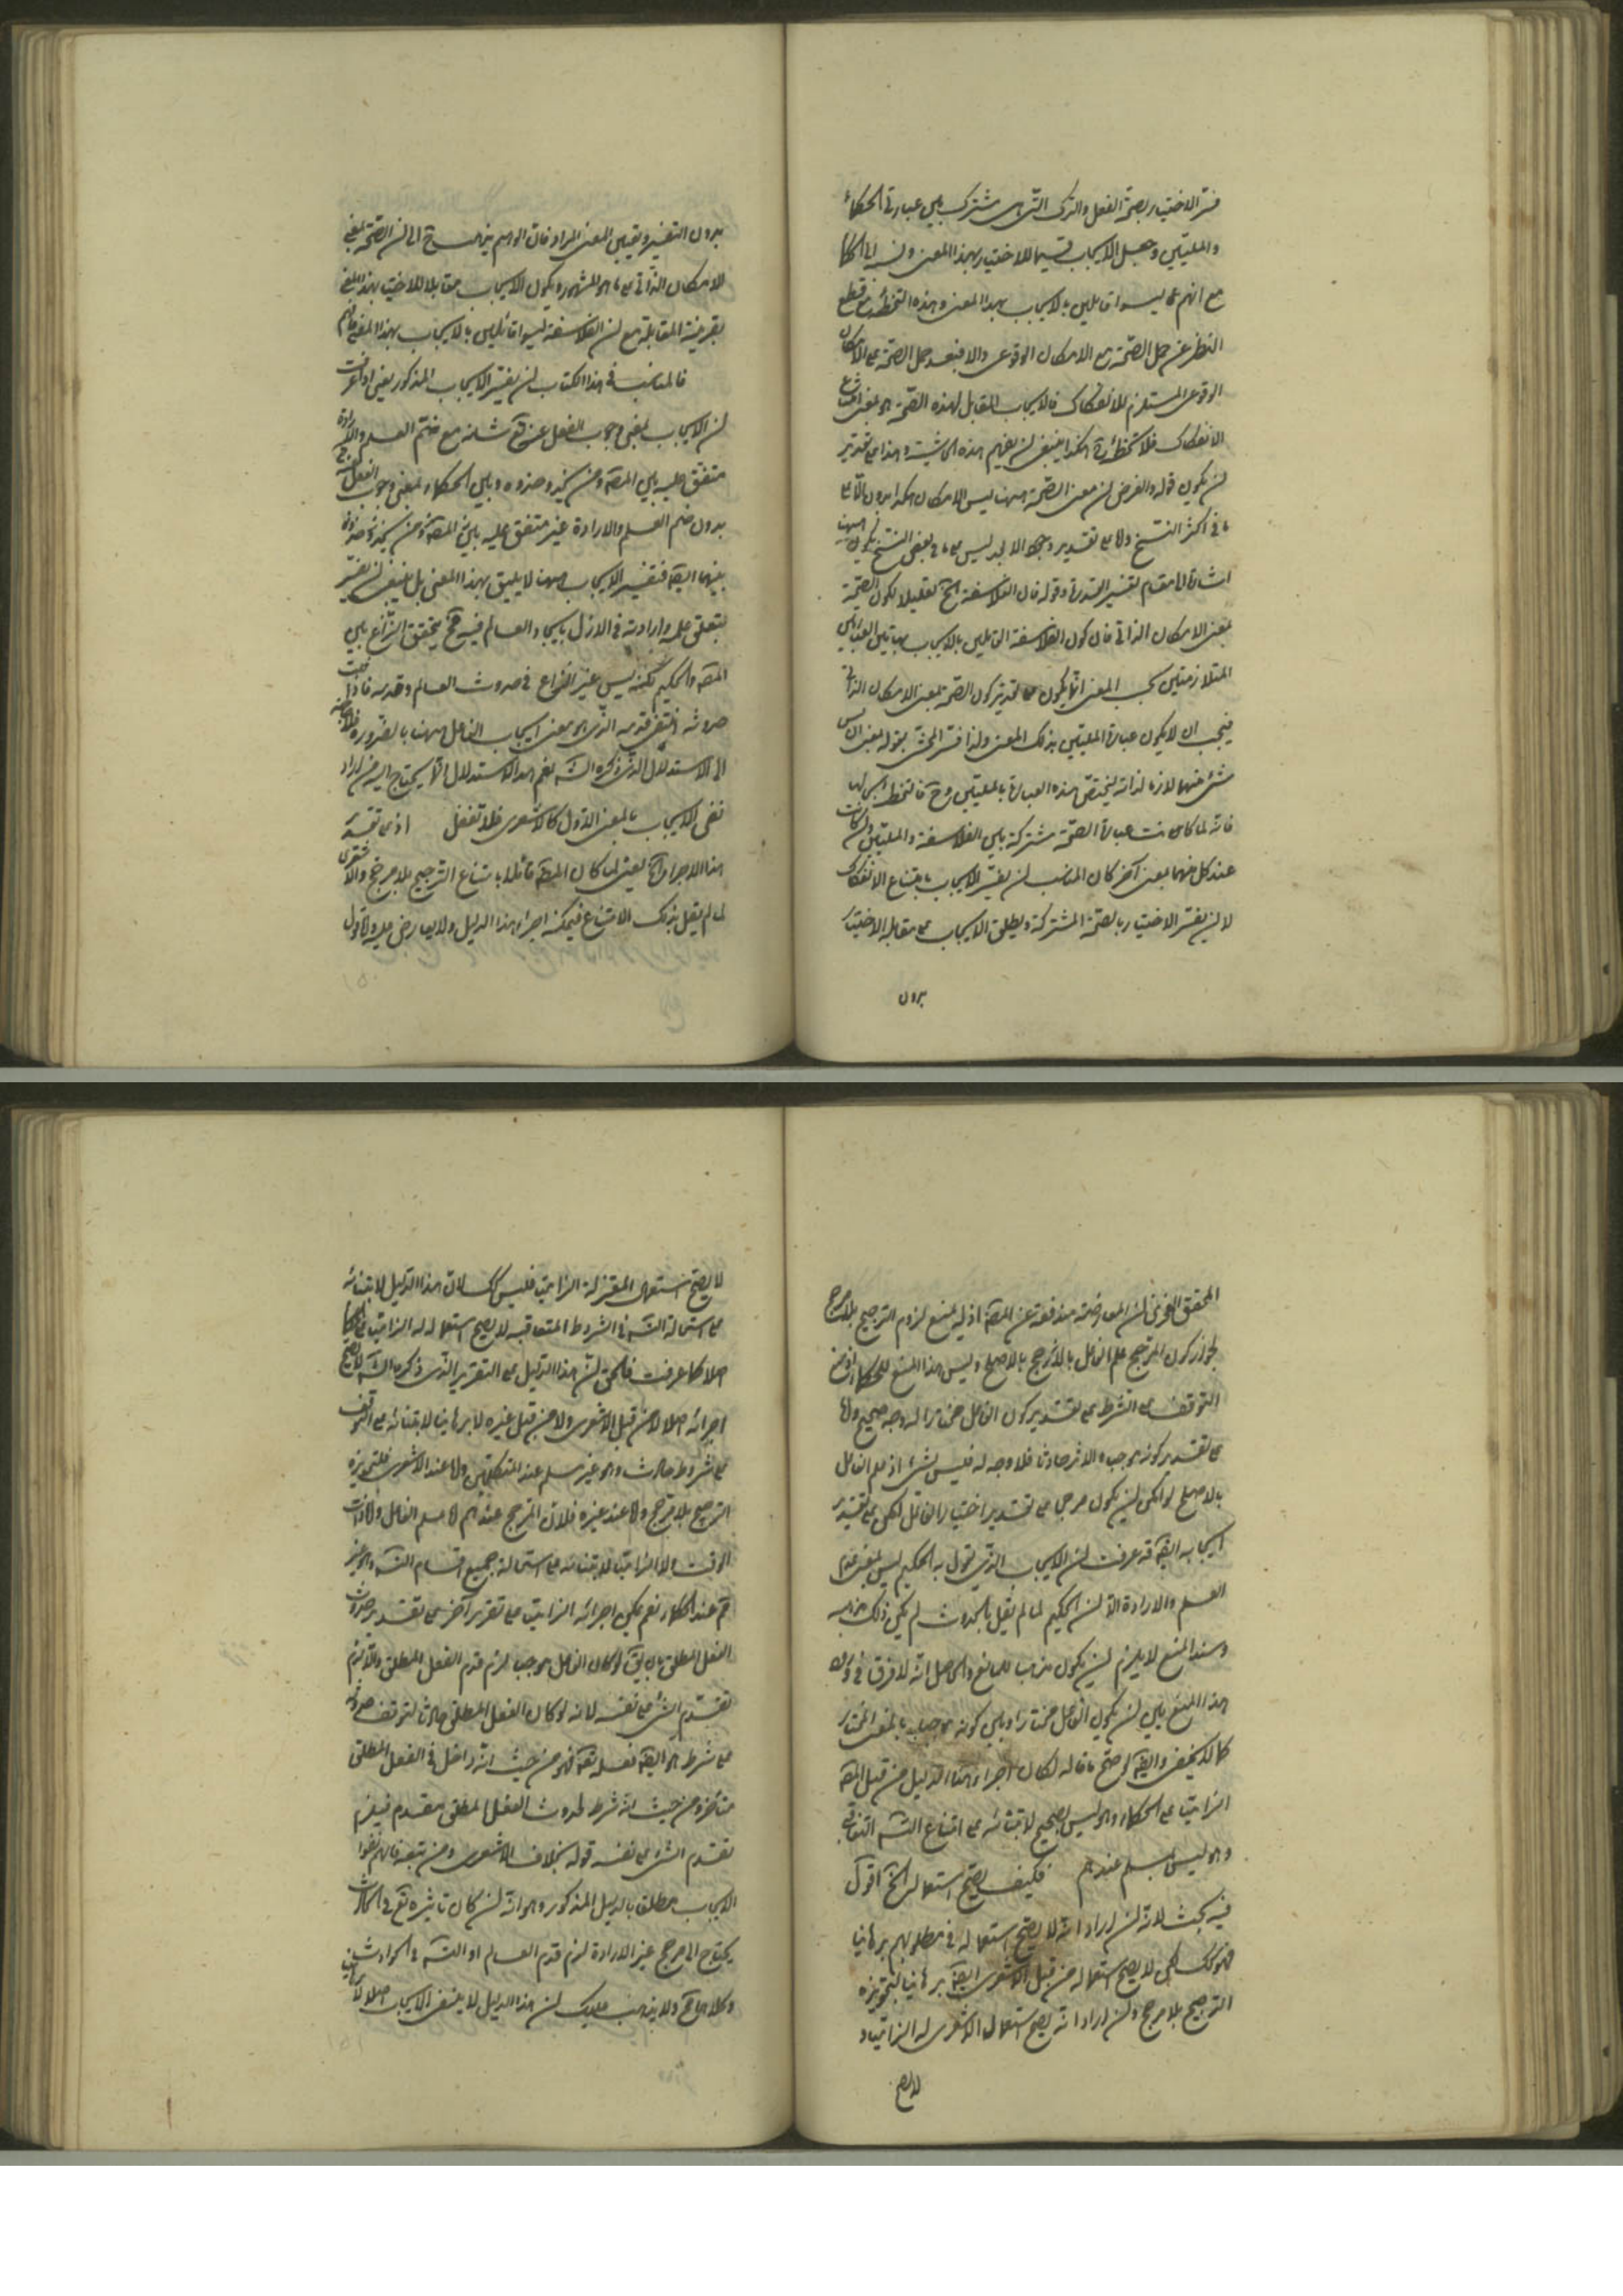 فسّر الاختيار بصحّة الفعل والترك التى هى مشترك بين عبارتى الحكماء
والمليّين وجعل الايجاب قسيما للاختيار بهذا المعنى ونسبه الى الحكما
مع انهم ليسوا قايلين بالايجاب بهذا المعنى وهذه التخطئة مع قطع
النظر عن حمل الصّحة على الامكان الوقوعى والا فبعد حمل الصّحة على الامكان
الوقوعى المستلزم للانفكاك فالايجاب المقابل لهذه الصّحة هو بمعنى امتناع
الانفكاك فلا تخطئة هكذا ينبغى ان يفهم هذه الحاشية وهذا على تقدير
ان يكون قوله والغرض ان معنى الصّحة ههنا ليس الامكان هكذا بدون الّا على
ما فى اكثر النسخ واما على تقدير وجود الا بعد ليس على ما فى بعض النسخ يكون ههنا
اشارة الى مقام تفسير القدرة وقوله فان الفلاسفة الخ تعليلا لكون الصّحة
بمعنى الامكان الذاتى فان كون الفلاسفة القايلين بالايجاب بهاتين العبارتين
المتلازمتين بحسب المعنى انّما يكون على تقدير كون الصّحة بمعنى الامكان الذاتى
فيجب ان لا يكون عبارة المليّين بذلك المعنى ولذا فسّر المحشى بقوله بمعنى ان ليس
شىء منهما لازما لذاته ليختصّ هذه العبارة بالمليّين وح فالتخطئة
فانه لما كانت عبارة الصّحة مشتركة بين الفلاسفة والمليّين وان كانت
عند كل منهما بمعنى آخر كان المناسب ان يفسّر الايجاب بامتناع الانفكاك
لا ان يفسّر الاختيار بالصّحة المشتركة ويطلق الايجاب على مقابله الاختيار
بدون
بدون التفسير وتعيين المعنى المراد فان الوهم يذهب ح الى ان الصّحة بمعنى
الامكان الذّاتى على ما هو المشهور ويكون الايجاب مقابلا للاختيار بهذا المعنى
بقرينة المقابلة مع ان الفلاسفة ليسوا قائلين بالايجاب بهذا المعنى فافهم
فالمناسب فى هذا الكتاب ان يفسّر الايجاب المذكور يعنى اذا عرفت
ان الايجاب بمعنى وجوب الفعل عنه تع شانه مع ضمّ العلم والارادة
متفق عليه بين المصّ ومن يحذو حذوه وبين الحكماء وبمعنى وجوب الفعل عنه تع
بدون ضم العلم والارادة غير متفق عليه بين المصّ ومن يحذو حذوه
بينهما ايضا فتفسير الايجاب ههنا لا يليق بهذا المعنى بل ينبغى ان يفسّر
بتعلق علمه وارادته فى الازل بايجاد العالم فيه فح يتحقق النّزاع بين
المصّ والحكيم لكنه ليس غير النزاع فى حدوث العالم وقدمه فاذا ثبت
حدوثه انتفى قدمه الذّى هو معنى ايجاب الفاعل ههنا بالضرورة فلا حاجة
الى الاستدلال الذّى ذكره الش نعم هذا الاستدلال انّما يحتاج اليه من اراد
نفى الايجاب بالمعنى الاوّل كالاشعرى فلا تغفل اذ على تقدير
هذا الاجراء الخ يعنى لما كان المصّ قائلا بامتناع الترجيح بلا مرجّح والاشعرى
لما لم يقل بذلك الامتناع فيمكنه اجراء هذا الدليل ولا يعارض عليه واقول
المحقق الفخرى ان المعارضة مندفعة عن المصّ اذ له منع لزوم الترجيح بلا مرجح
لجواز كون المرجح علم الفاعل بالارجح بالاصلح وليس هذا المنع للحكماء
التوقف على الشرط على تقدير كون الفاعل مختارا له وجه صحيح واما
على تقدير كونه موجبا والاثر حادثا فلا وجه له فليس بشىء اذ علم الفاعل
بالاصلح لو امكن ان يكون مرجحا على تقدير اختيار الفاعل لكن على تقدير
ايجابه ايضا قد عرفت ان الايجاب الذّى يقول به الحكيم ليس بمعنى عدم
العلم والارادة الا ان الحكيم لما لم يقل بالحدوث لم يكن ذلك مذهبه
وسند المنع لا يلزم ان يكون مذهبا للمانع والحاصل انه لا فرق فى ورود
هذا المنع بين ان يكون الفاعل مختارا وبين كونه موجبا بالمعنى المختار
كما لا يخفى وايضا لو صحّ ما قاله لكان اجراء هذا الدليل من قبل المصّ
الزاميا على الحكماء وهو ليس بصحيح لابتنائه على امتناع التّس التعاقبى
وهو ليس بمسلم عندهم فكيف يصحّ استعمال الخ اقول
فيه بحث لانه ان اراد انّه لا يصحّ استعماله فى مطلوبهم برهانيا
فهو كك لكن لا يصح استعماله من قبل الاشعرى ايضا برهانيا لتجويزه
الترجيح بلا مرجح وان اراد انه يصح استعمال الاشعرى له الزاميا و
لا يصح
لا يصحّ استعمال المعتزلة الزاميا فليس كك لان هذا الدّليل لابتنائه
على استحالة التّس فى الشروط المتعاقبة لا يصح استعماله له الزاميا على الحكما
اصلا كما عرفت فالحق انّ هذا الدّليل على التقرير الذّى ذكره الش لا يصح
اجرائه اصلا لا من قبل الاشعرى ولا من قبل غيره لا برهانيا لابتنائه على التوقف
على شروط حادث وهو غير مسلم عند المتكلّمين واما عند الاشعرى فلتجويزه
الترجيح بلا مرجح واما عند غيره فلان المرجح عندهم اما علم الفاعل واما ذات
الوقت ولا الزاميا لابتنائه على استحالة جميع اقسام التّس وهو غير
تم عند الحكماء نعم يمكن اجرائه الزاميا على تقرير آخر على تقدير حدوث
الفعل المطلق بان يق لو كان الفاعل موجبا لزم قدم الفعل المطلق والّا لزم
تقدّم الشىء على نفسه لانه لو كان الفعل المطلق حادثا لتوقف حدوثه
على شرط هو ايضا فعله تع فهو من حيث انه داخل فى الفعل المطلق
متأخر ومن حيث انه شرط لحدوث الفعل المطلق مقدم فيلزم
تقدم الشىء على نفسه قوله بخلاف الاشعرى ومن تبعه فانهم نفوا
الايجاب مطلقا بالدليل المذكور وهو انّه ان كان تاثيره تع فى الحادث
يحتاج الى مرجح غير الارادة لزم قدم العالم او التّس فى الحوادث
وكلاهما مح ولا يذهب عليك ان هذا الدليل لا ينفى الايجاب اصلا لا برهانيا